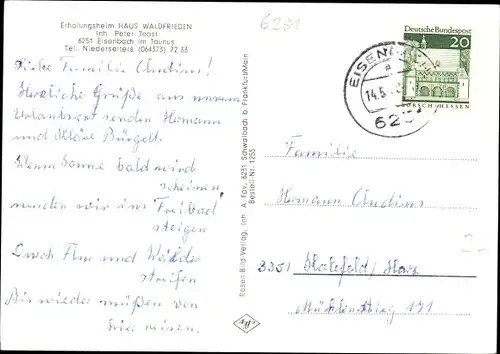 Erholungsheim HAUS WALDFRIEDEN
Inh. Peter Joost
6251 Eisenbach im Taunus
Tel. Niederselters (064373) 72 33
6251
Deutsche Bundespost
20
LORSCH/HESSEN
EISENBACH
a
14.5.
625
Liebe Familie
Herzliche Grüße aus unserem
Urlaubsort senden Hermann
und Kläre
Wenn Sonne bald wird
scheinen,
werden wir ins Freibad
steigen
Durch Flur und Wälder
streifen
Bis wieder müßen von
hier reisen.
Rosen-Bild-Verlag, Inh. A. Fay, 6231 Schwalbach b. Frankfurt/Main
Bestell-Nr. 1255
Familie
Hermann
3351 Harz
171
2.-